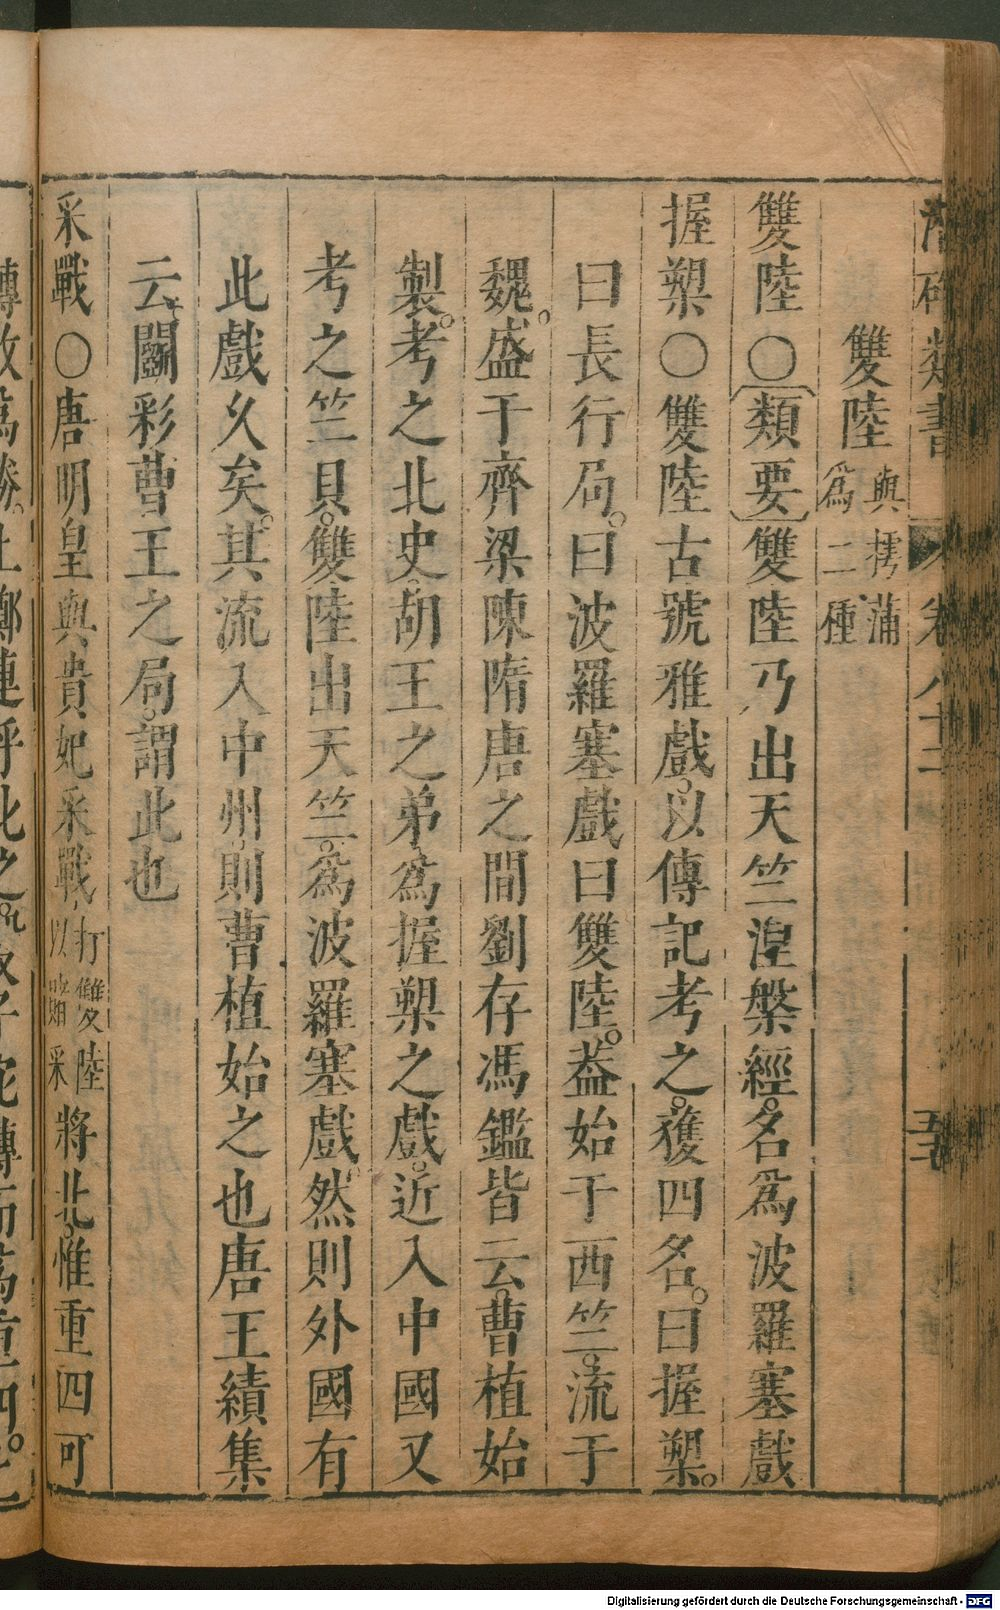 潛確類書 卷八十二 五十七
雙陸 與摴蒲爲二種
雙陸〇〔類要〕雙陸乃出天竺湼槃經。名爲波羅塞戲
握槊〇雙陸古號雅戲。以傳記考之。獲四名。曰握槊。
曰長行局。曰波羅塞戲曰雙陸。葢始于西竺。流于
魏。盛于齊梁陳隋唐之間劉存馮鑑皆云。曹植始
製。考之北史。胡王之弟爲握槊之戲。近入中國又
考之竺貝。雙陸出天竺。爲波羅塞戲。然則外國有
此戲久矣。其流入中州。則曹植始之也唐王績集
云。鬭彩曹王之局。謂此也
采戰〇唐明皇與貴妃采戰、打雙陸以賭采將北。惟重四可
轉敗爲勝。上擲連呼叱之。
Digitalisierung gefördert durch die Deutsche Forschungsgemeinschaft - DFG